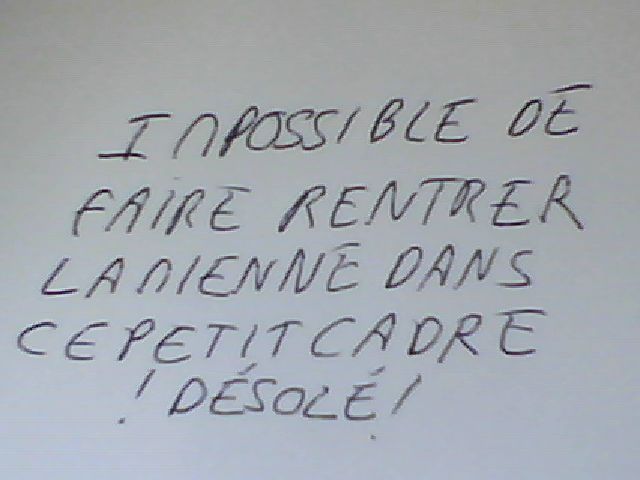 IMPOSSIBLE DE
FAIRE RENTRER
LA MIENNE DANS
CE PETIT CADRE
! DÉSOLÉ !